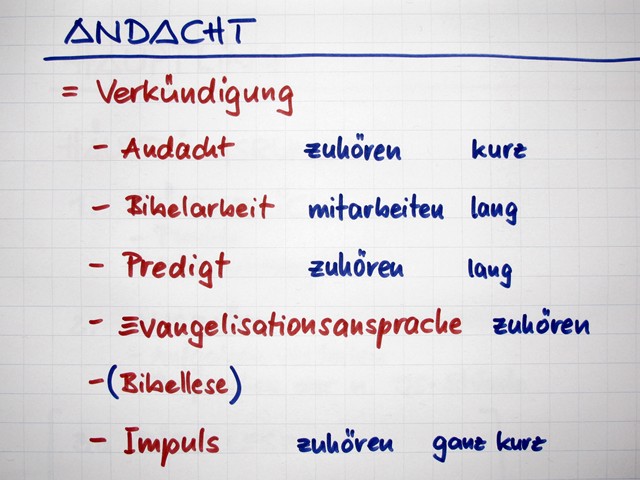 ANDACHT
= Verkündigung
- Andacht zuhören kurz
- Bibelarbeit mitarbeiten lang
- Predigt zuhören lang
- Evangelisationsansprache zuhören
- (Bibellese)
- Impuls zuhören ganz kurz